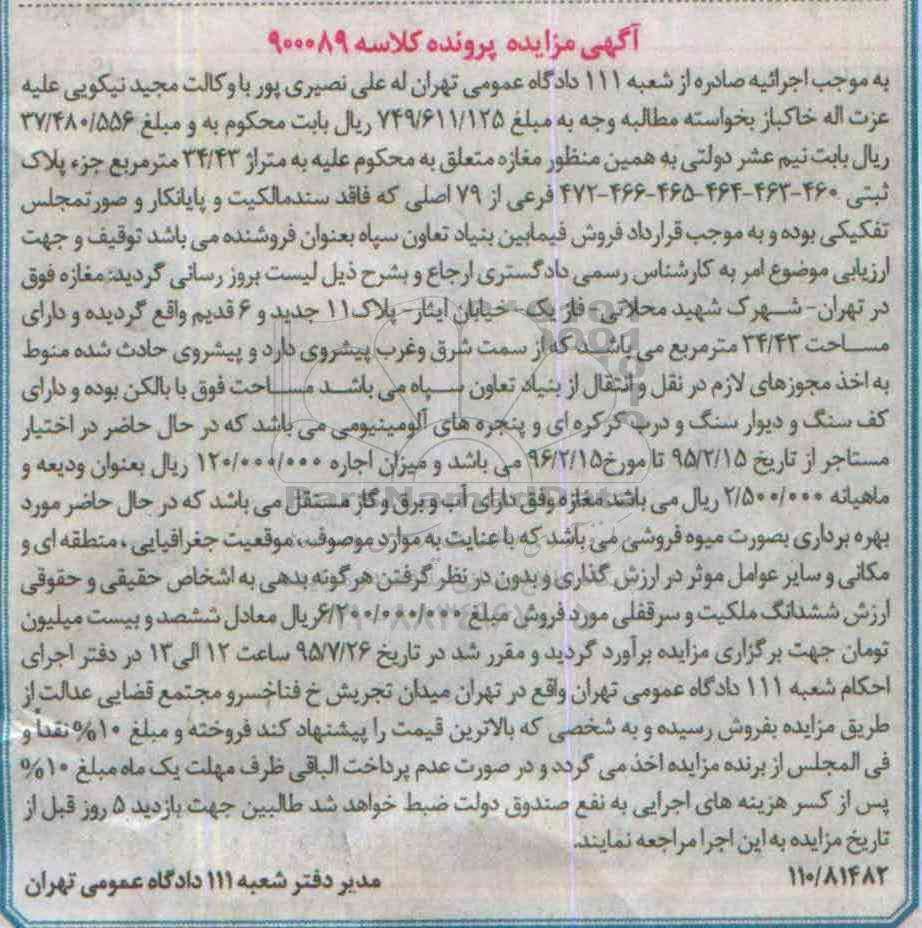 آگهی مزایده پرونده کلاسه ۹۰۰۰۸۹
به موجب اجرائیه صادره از شعبه ۱۱۱ دادگاه عمومی تهران له علی نصیری پور با وکالت مجید نیکویی علیه
عزت اله خاکباز بخواسته مطالبه وجه به مبلغ ۷۴۹/۶۱۱/۱۲۵ ریال بابت محکوم به و مبلغ ۳۷/۴۸۰/۵۵۶
ریال بابت نیم عشر دولتی به همین منظور مغازه متعلق به محکوم علیه به متراژ ۳۴/۴۳ مترمربع جزء پلاک
ثبتی ۴۶۰-۴۶۳-۴۶۴-۴۶۵-۴۶۶-۴۷۲ فرعی از ۷۹ اصلی که فاقد سندمالکیت و پایانکار و صورتمجلس
تفکیکی بوده و به موجب قرارداد فروش فیمابین بنیاد تعاون سپاه بعنوان فروشنده می باشد توقیف و جهت
ارزیابی موضوع امر به کارشناس رسمی دادگستری ارجاع و بشرح ذیل لیست بروز رسانی گردید: مغازه فوق
در تهران- شهرک شهید محلاتی- فاز یک- خیابان ایثار- پلاک۱۱ جدید و ۶ قدیم واقع گردیده و دارای
مساحت ۳۴/۴۳ مترمربع می باشد که از سمت شرق وغرب پیشروی دارد و پیشروی حادث شده منوط
به اخذ مجوزهای لازم در نقل و انتقال از بنیاد تعاون سپاه می باشد مساحت فوق با بالکن بوده و دارای
کف سنگ و دیوار سنگ و درب کرکره ای و پنجره های آلومینیومی می باشد که در حال حاضر در اختیار
مستاجر از تاریخ ۹۵/۲/۱۵ تا مورخ۹۶/۲/۱۵ می باشد و میزان اجاره ۱۲۰/۰۰۰/۰۰۰ ریال بعنوان ودیعه و
ماهیانه ۲/۵۰۰/۰۰۰ ریال می باشد مغازه وفق دارای آب و برق و گاز مستقل می باشد که در حال حاضر مورد
بهره برداری بصورت میوه فروشی می باشد که با عنایت به موارد موصوف، موقعیت جغرافیایی، منطقه ای و
مکانی و سایر عوامل موثر در ارزش گذاری و بدون در نظر گرفتن هرگونه بدهی به اشخاص حقیقی و حقوقی
ارزش ششدانگ ملکیت و سرقفلی مورد فروش مبلغ ۶/۲۰۰/۰۰۰/۰۰۰ریال معادل ششصد و بیست میلیون
تومان جهت برگزاری مزایده برآورد گردید و مقرر شد در تاریخ ۹۵/۷/۲۶ ساعت ۱۲ الی۱۳ در دفتر اجرای
احکام شعبه ۱۱۱ دادگاه عمومی تهران واقع در تهران میدان تجریش خ فناخسرو مجتمع قضایی عدالت از
طریق مزایده بفروش رسیده و به شخصی که بالاترین قیمت را پیشنهاد کند فروخته و مبلغ ۱۰% نقداً و
فی المجلس از برنده مزایده اخذ می گردد و در صورت عدم پرداخت الباقی ظرف مهلت یک ماه مبلغ ۱۰%
پس از کسر هزینه های اجرایی به نفع صندوق دولت ضبط خواهد شد طالبین جهت بازدید ۵ روز قبل از
تاریخ مزایده به این اجرا مراجعه نمایند.
۱۱۰/۸۱۴۸۲
مدیر دفتر شعبه ۱۱۱ دادگاه عمومی تهران